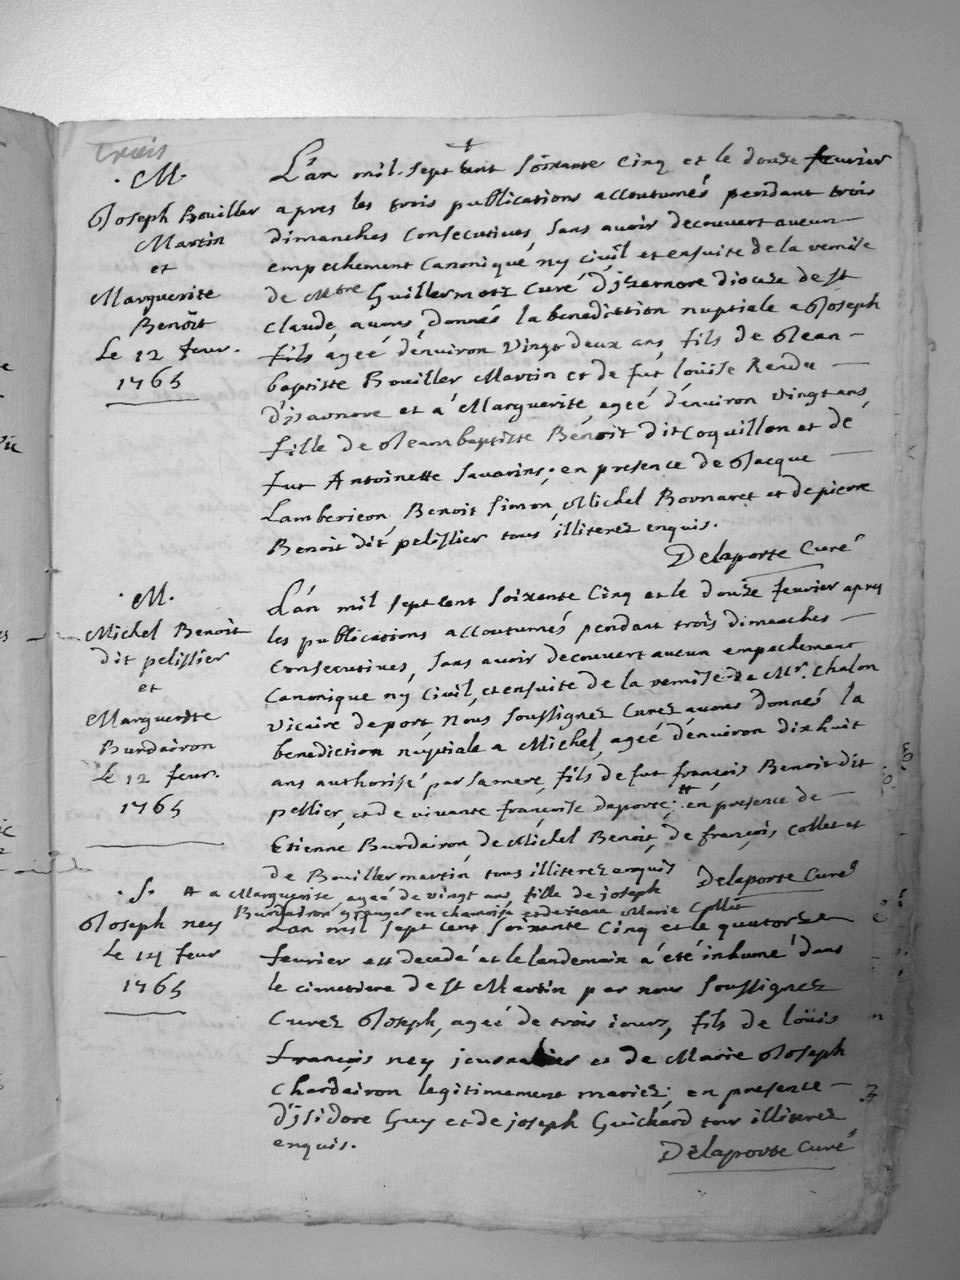 Trois
M.
Joseph Bouiller
Martin
et
Marguerite
Benoit
Le 12 feur.
1765
L'an mil sept cent soixante cinq et le douze feurier
apres les trois publications accoutumés pendant trois
dimanches consecutives, sans avoir decouvert aucun
empechement canonique ny civil et ensuite de la remise
de Mtre Guillermoz Curé D'izernore dioceze de st
Claude, avons donnés la benediction nuptiale a Joseph
fils ageé d'environ vingt deux ans, fils de Jean
baptiste Bouiller Martin et de fut loüise Rendu
D'isarnore et a Marguerite, ageé d'environ vingt ans,
fille de Jean baptiste Benoit dit Coquillon et de
fut Antoinette Savarins; en presence de Jacque
Lambericon, Benoit Simon, Michel Bonnaret et de pierre
Benoit dit pelissier tous illiterez enquis.
Delaporte Curé
M.
Michel Benoit
dit pelissier
et
Marguerite
Burdairon
Le 12 feur.
1765
L'an mil sept cent soixante cinq et le douze feurier apres
les publications accoutumés pendant trois dimanches
consecutives, sans avoir decouvert aucun empechement
canonique ny civil, et ensuite de la remise de Mr. Chalon
vicaire de port nous soussignez Curez avons donnés la
benediction nuptiale a Michel, ageé d'environ dixhuit
ans authorisé par sa mere, fils de fut françois Benoit dit
pellier, et de vivante françoise daporte; # en presence de
Etienne Burdairon de Michel Benoit, de françois Collet et
de Bouiller martin tous illiterez enquis
Delaporte Curé
# a Marguerite, ageé de vingt ans, fille de joseph
Burdairon granger en et de Marie Collet
S.
Joseph ney
Le 14 feur
1765
L'an mil sept cent soixante cinq et le quatorze
feurier est decedé et le lendemain a été inhumé dans
le cimetiere de st Martin par nous soussignez
Curez Joseph, ageé de trois jours, fils de loüis
françois ney journalier et de Marie Joseph
Chardairon legitimement mariez; en presence
d'isidore Guy et de joseph Guichard tous illiterez
enquis.
Delaporte Curé